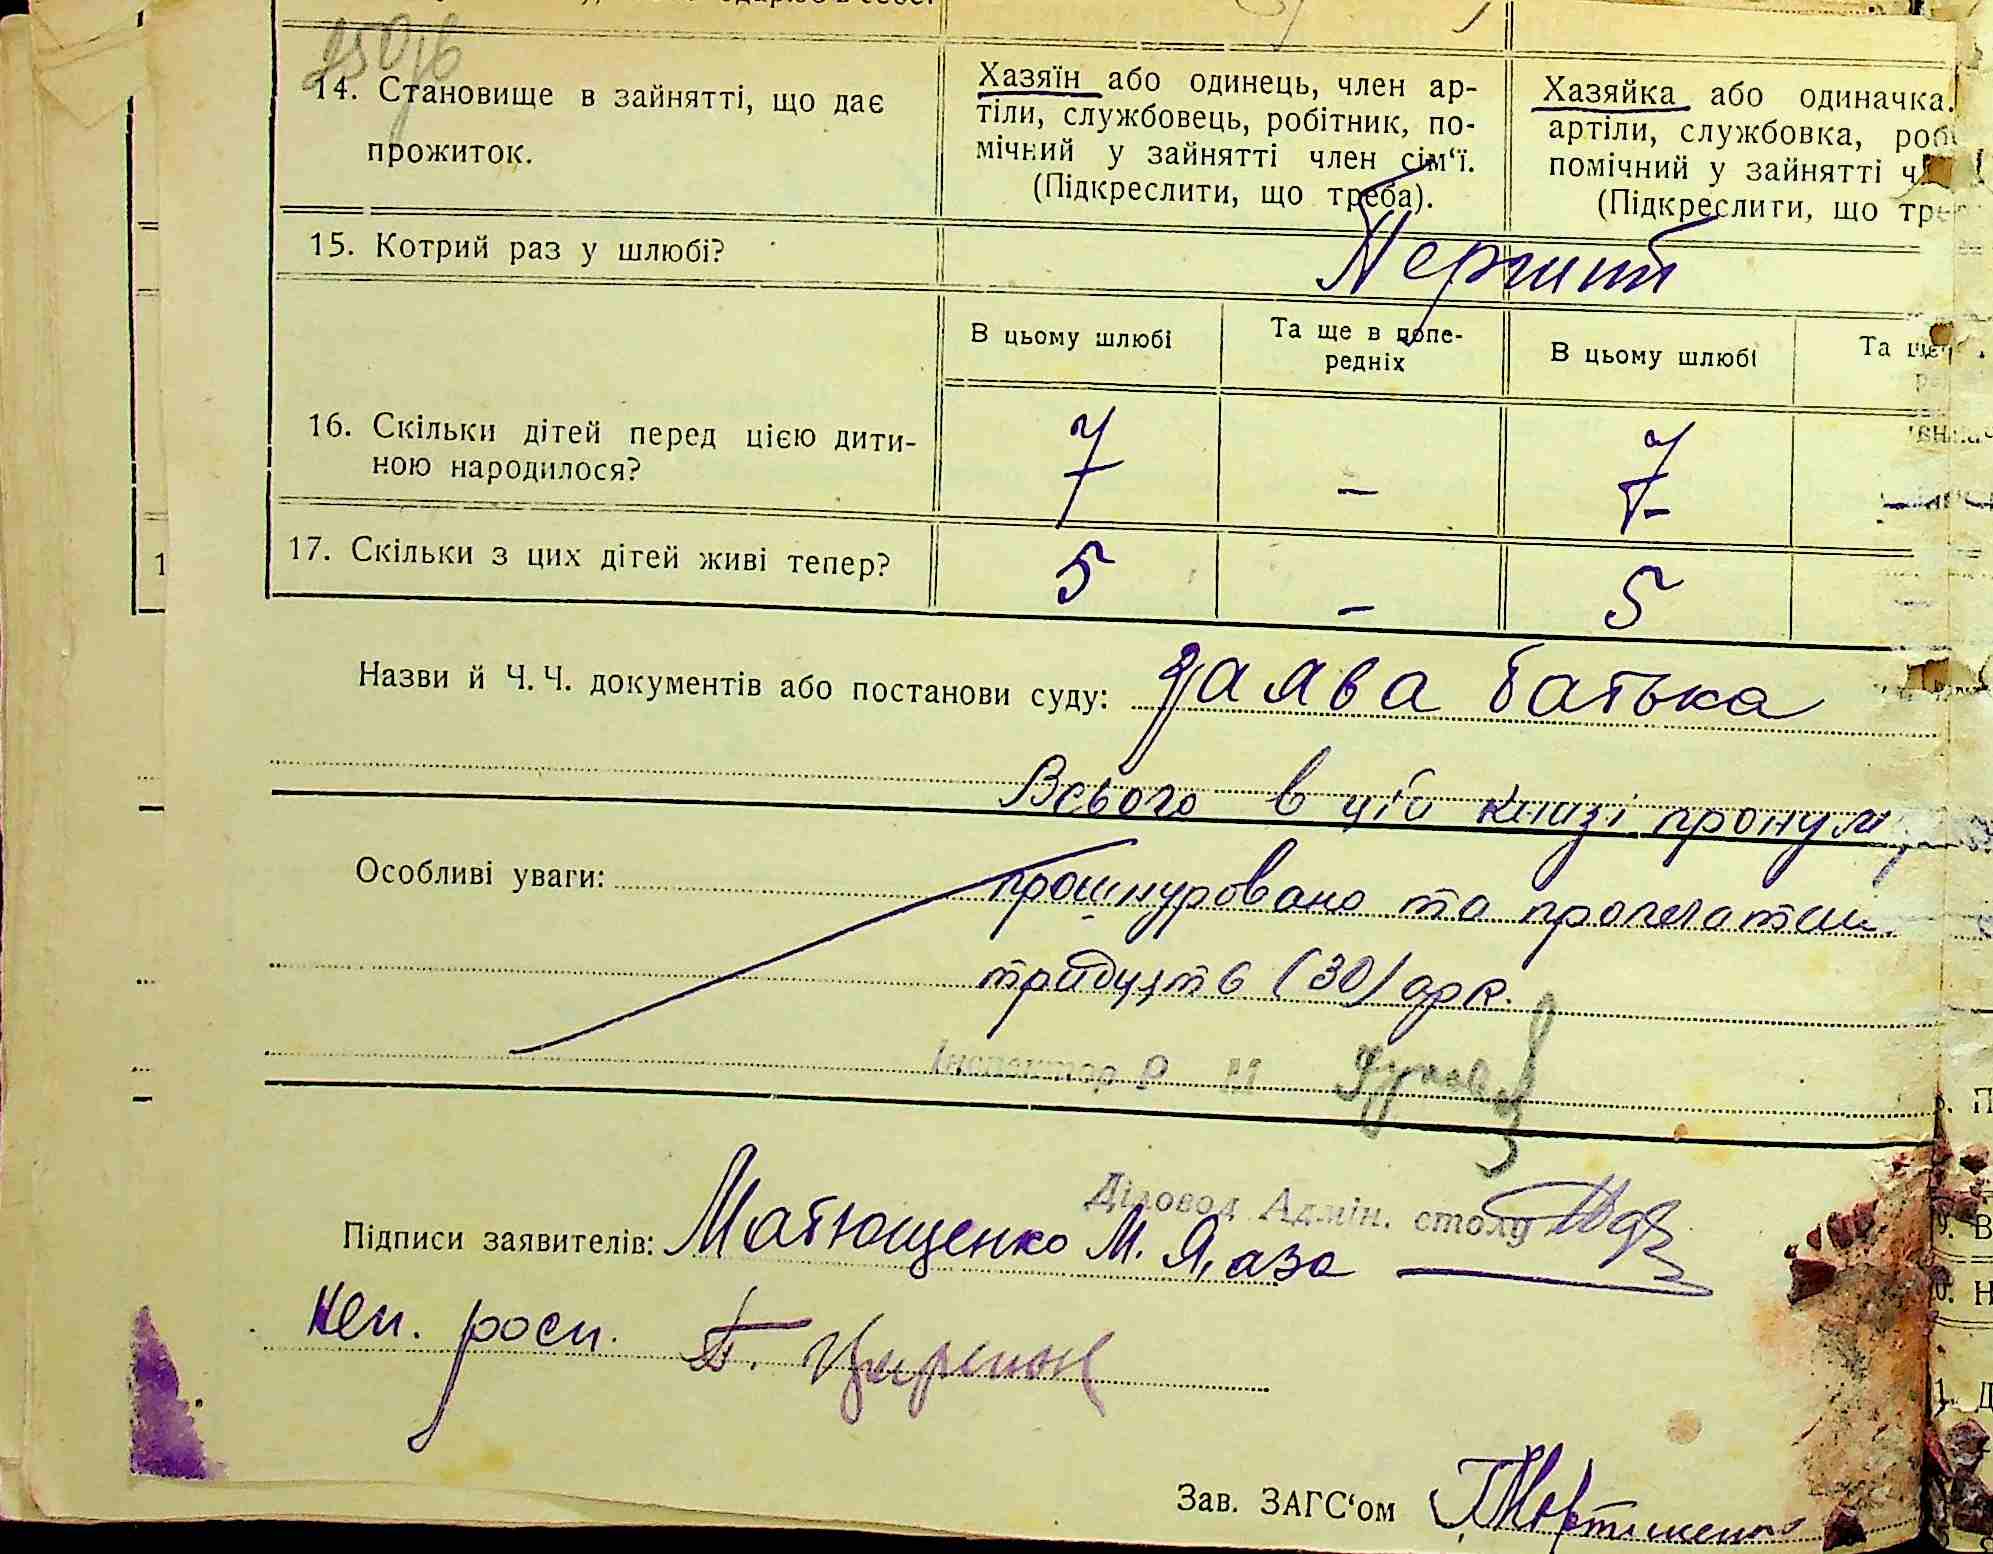 14. Становище в зайнятті, що дає
прожиток.
Хазяїн або одинець, член ар-
тіли, службовець, робітник, по-
мічний у зайнятті член сім‘ї.
(Підкреслити, що треба).
Хазяйка або одиначка.
артіли, службовка, роб
помічний у зайнятті ч
(Підкреслити, що тре
15. Котрий раз у шлюбі?
Перший
В цьому шлюбі
Та ще в попе-
редніх
В цьому шлюбі
Та ще
16. Скільки дітей перед цією дити-
ною народилося?
7 - 7 -
17. Скільки з цих дітей живі тепер?
5 - 5
Назви й Ч. Ч. документів або постанови суду: Заява батька
Всього в цій книзі пронум
Особливі уваги:
прошнуровано та
тридцять (30) арк.
Інспектор Р
Діловод Адмін. столу
Підписи заявителів: Матющенко М. Я, аза
неп. росп.
Зав. ЗАГС‘ом